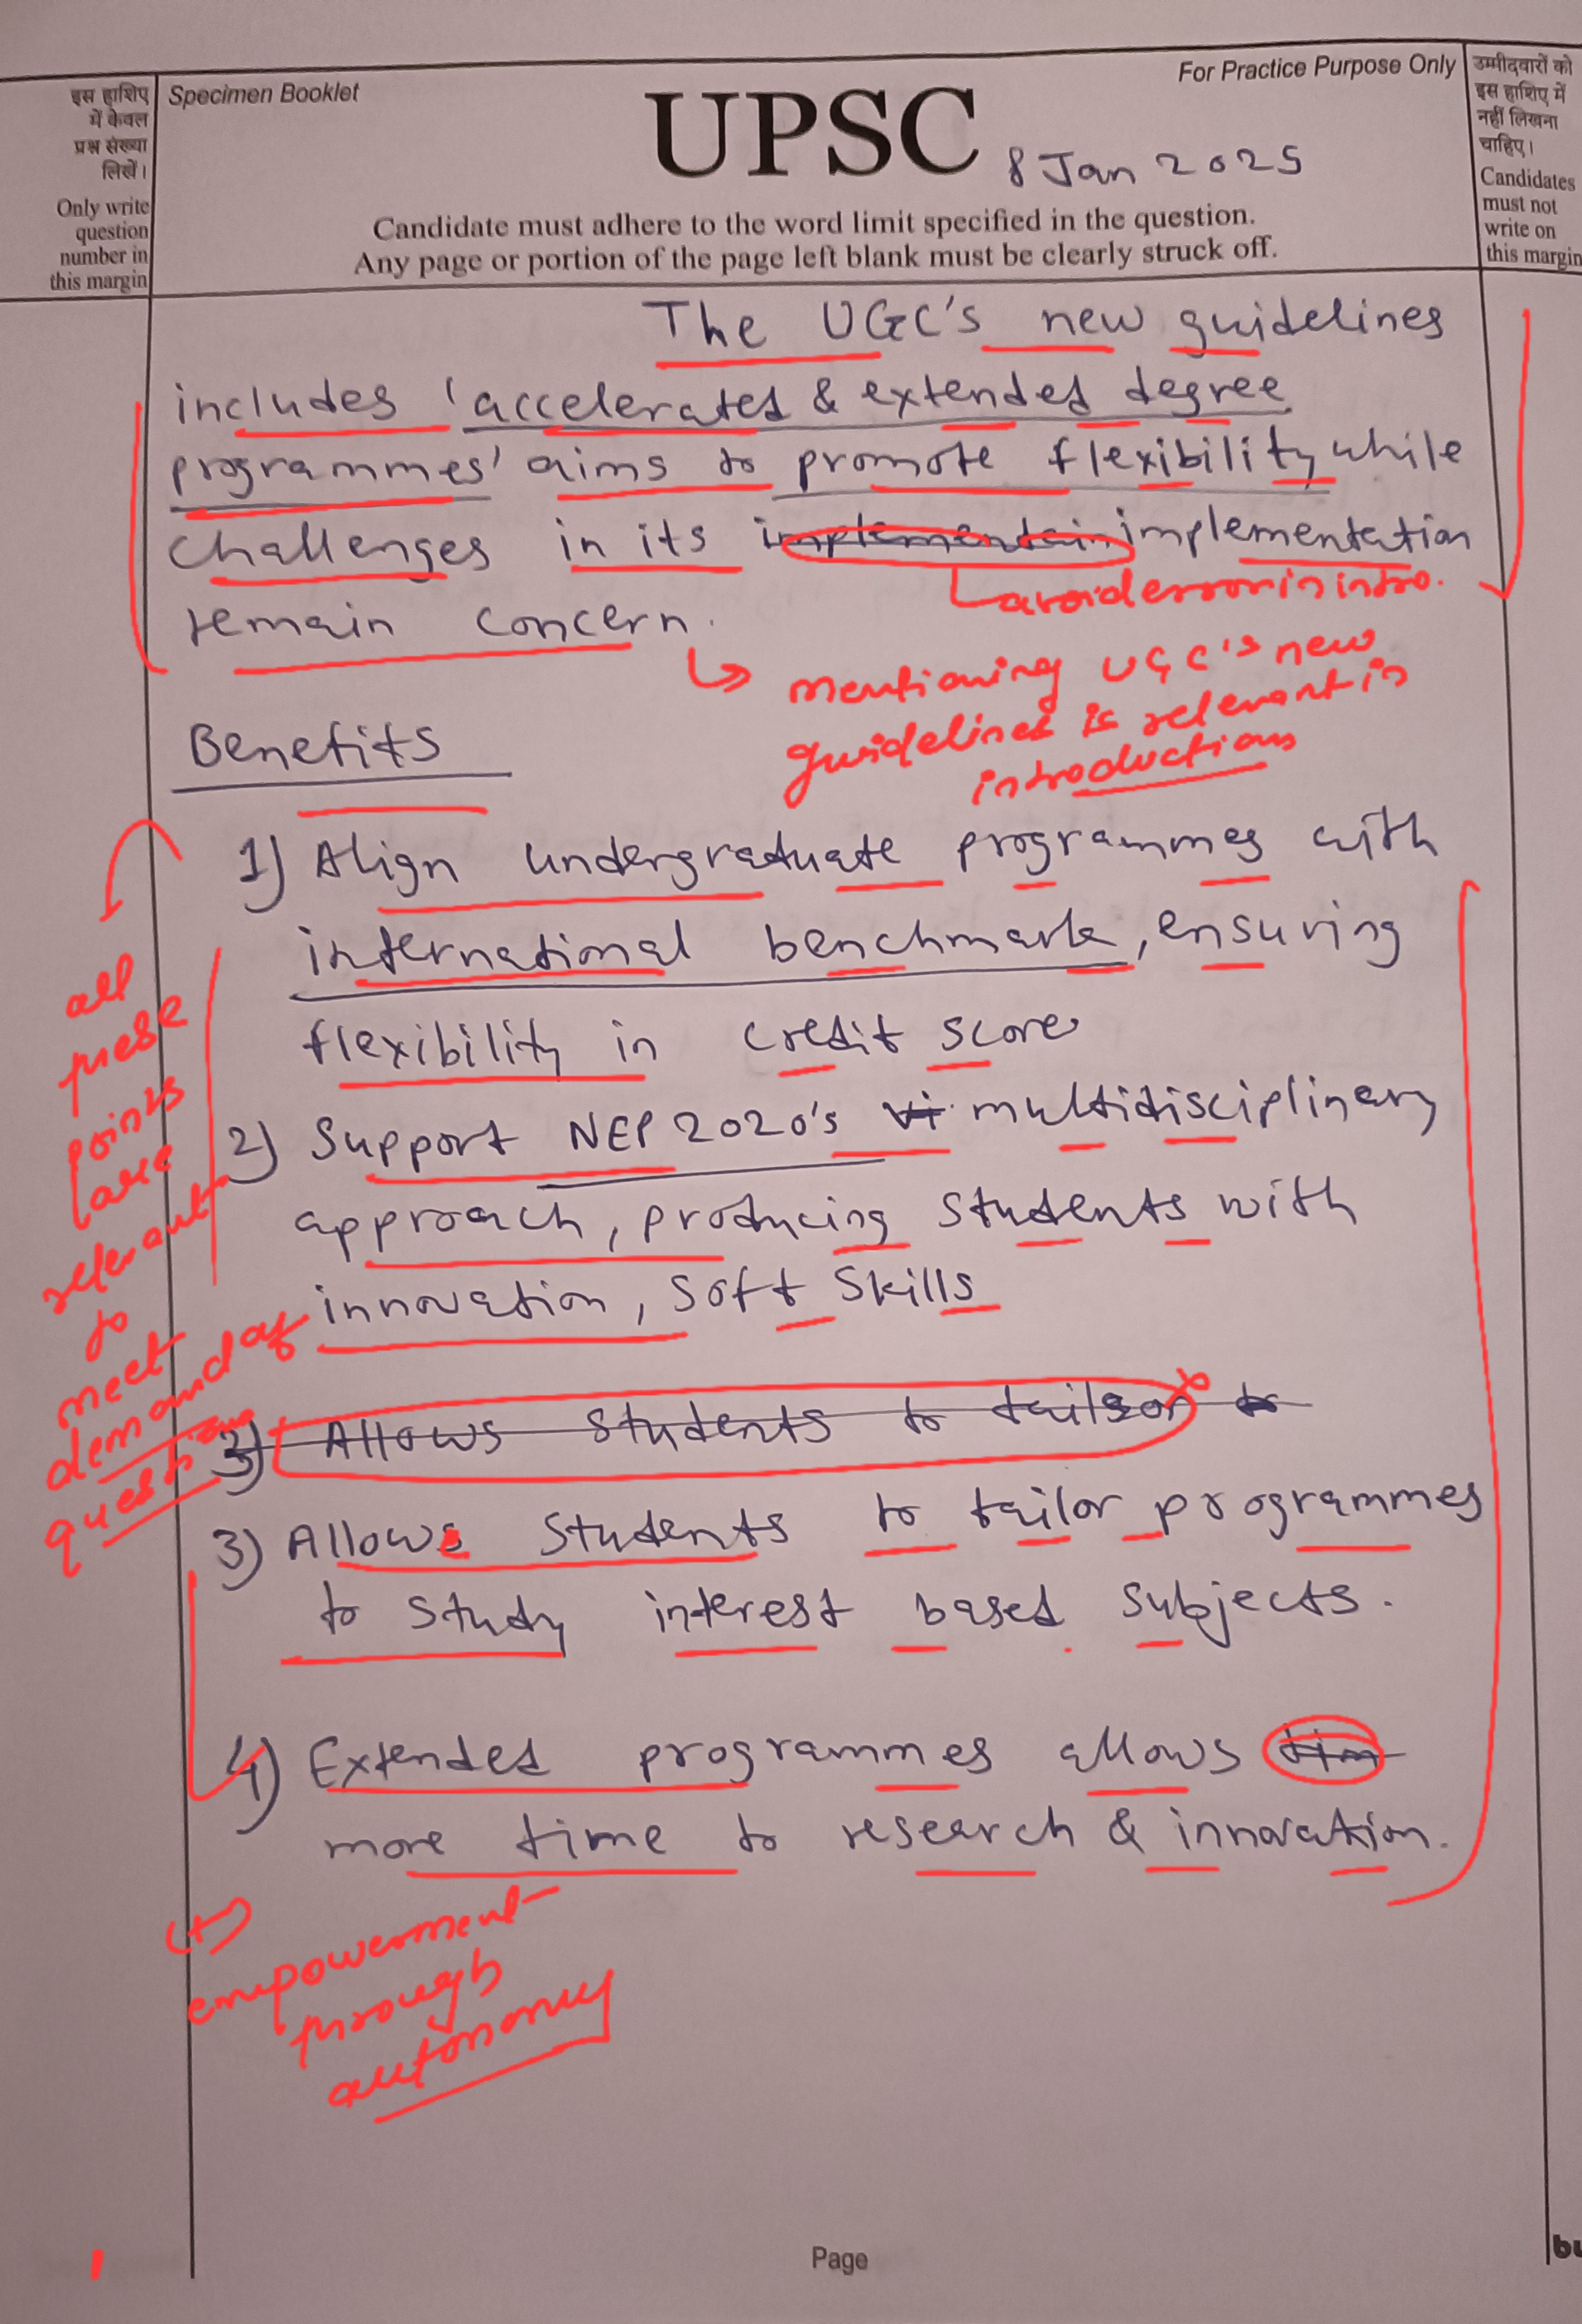 इस हाशिए
में केवल
प्रश्न संख्या
लिखें।
Only write
question
number in
this margin
Specimen Booklet
For Practice Purpose Only
UPSC
8 Jan 2025
Candidate must adhere to the word limit specified in the question.
Any page or portion of the page left blank must be clearly struck off.
उम्मीदवारों को
इस हाशिए में
नहीं लिखना
चाहिए।
Candidates
must not
write on
this margin
The UGC's new guidelines
includes 'accelerated & extended degree
programmes' aims to promote flexibility while
challenges in its implementain implementation
avoid error in intro.
remain concern.
mentioning UGC's new
guidelines is relevant in
introduction
Benefits
1) Align undergraduate programmes with
international benchmark, ensuring
flexibility in credit score
all
these
points
are
relevant
to
meet
demand of
question
2) Support NEP 2020's vi multidisciplinary
approach, producing students with
innovation, soft skills
3) Allows students to tailor to
3) Allows students to tailor programmes
to study interest based subjects.
4) Extended programmes allows tim
more time to research & innovation.
(+)
empowerment
through
autonomy
Page